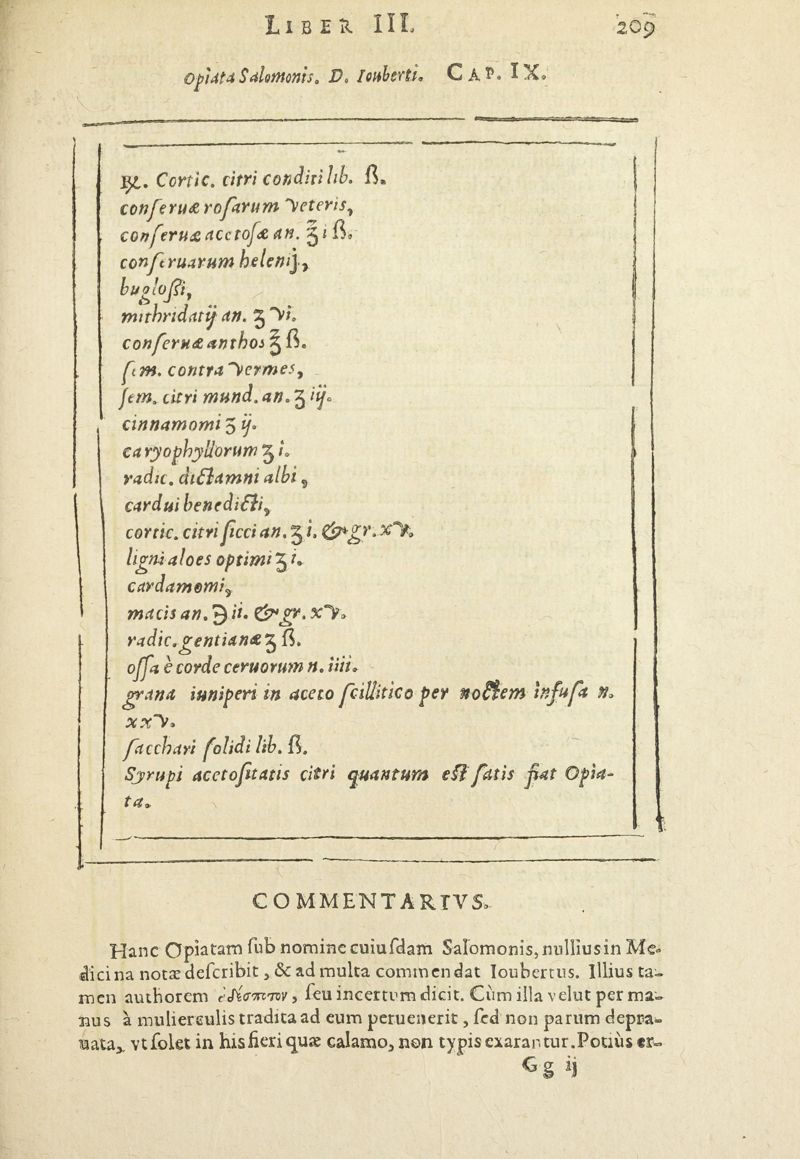 LIBER III. 209
Opiata Salomonis. D. Iouberti. CAP. IX.
℞. Cortic. citri conditi lib. ß.
conſeruæ roſarum veteris,
conſeruæ acetoſæ an. ℥ i ß.
conſeruarum helenij,
bugloßi,
mithridatij an. ʒ vi.
conſeruæ anthos ℥ ß.
ſem. contra vermes,
ſem. citri mund. an. ʒ iij.
cinnamomi ʒ ij.
caryophyllorum ʒ i.
radic. dictamni albi,
cardui benedicti,
cortic. citri ſicci an. ʒ i. & gr. xv.
ligni aloes optimi ʒ i.
cardamomi,
macis an. ℈ ii. & gr. xv.
radic. gentianæ ʒ ß.
oſſa è corde ceruorum n. iiii.
grana iuniperi in aceto ſcillitico per noctem infuſa n.
xxv.
ſacchari ſolidi lib. ß.
Syrupi acetoſitatis citri quantum eſt ſatis fiat Opia-
ta.
COMMENTARIVS.
Hanc Opiatam ſub nomine cuiuſdam Salomonis, nullius in Me-
dicina notæ deſcribit, & ad multa commendat Ioubertus. Illius ta-
men authorem ἀδέσποτον, ſeu incertum dicit. Cùm illa velut per ma-
nus à mulierculis tradita ad eum peruenerit, ſed non parum depra-
uata, vt ſolet in his fieri quæ calamo, non typis exarantur. Potiùs er-
Gg ij